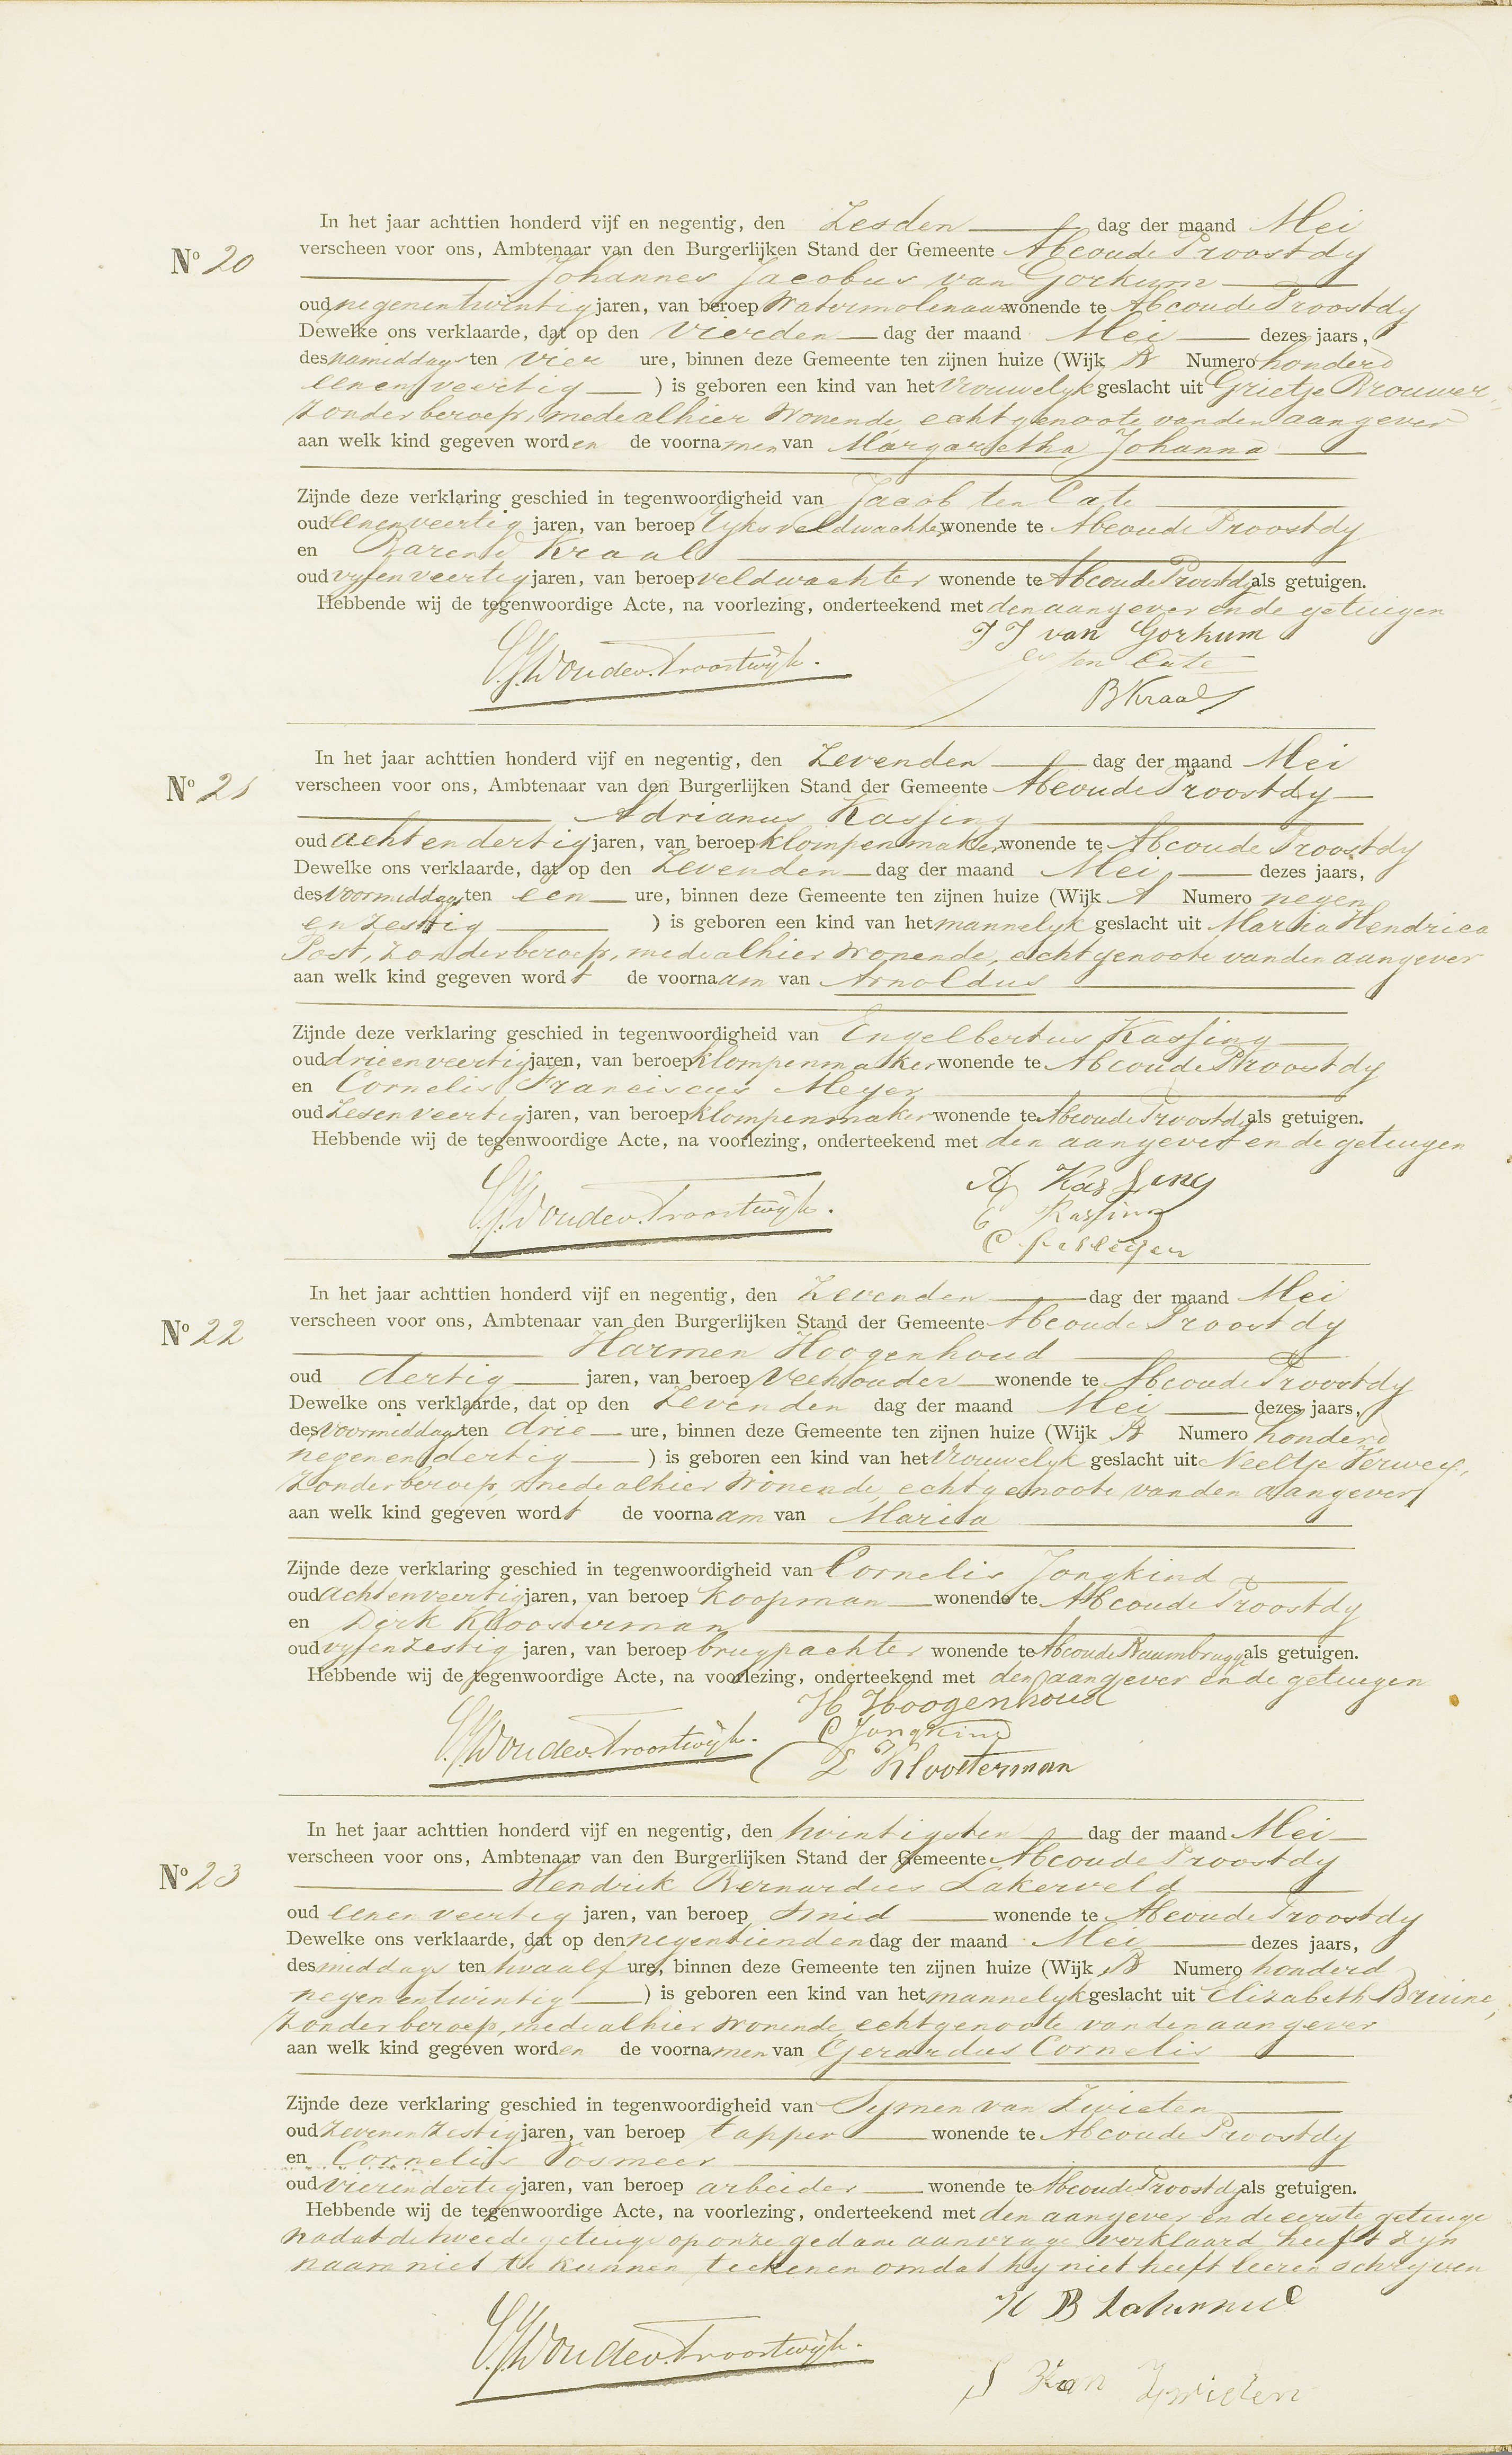 In het jaar achttien honderd vijf en negentig, den Zesden dag der maand Mei
Nº 20
verscheen voor ons, Ambtenaar van den Burgerlijken Stand der Gemeente Abcoude Proostdy
Johannes Jacobus van Gorkum
oud negenentwintig jaren, van beroep Watermolenaar wonende te Abcoude Proostdy
Dewelke ons verklaarde, dat op den Vierden dag der maand Mei dezes jaars,
des namiddags ten vier ure, binnen deze Gemeente ten zijnen huize (Wijk B Numero honderd
eenenveertig ) is geboren een kind van het Vrouwelyk geslacht uit Grietje Brouwer,
zonder beroep, mede alhier wonende, echtgenoote van den aangever
aan welk kind gegeven worden de voornamen van Margaretha Johanna
Zijnde deze verklaring geschied in tegenwoordigheid van Jacob ten Cate
oud eenenveertig jaren, van beroep ryksveldwachter wonende te Abcoude Proostdy
en Barend Kraal
oud vyfenveertig jaren, van beroep veldwachter wonende te Abcoude Proostdy als getuigen.
Hebbende wij de tegenwoordige Acte, na voorlezing, onderteekend met den aangever en de getuigen
J J van Gorkum
ten Cate
B Kraal
In het jaar achttien honderd vijf en negentig, den Zevenden dag der maand Mei
Nº 21
verscheen voor ons, Ambtenaar van den Burgerlijken Stand der Gemeente Abcoude Proostdy
Adrianus Kassing
oud achtendertig jaren, van beroep klompenmaker wonende te Abcoude Proostdy
Dewelke ons verklaarde, dat op den Zevenden dag der maand Mei dezes jaars,
des voormiddags ten een ure, binnen deze Gemeente ten zijnen huize (Wijk A Numero negen
en zestig ) is geboren een kind van het mannelyk geslacht uit Maria Hendrica
Post, zonder beroep, mede alhier wonende, echtgenoote van den aangever
aan welk kind gegeven wordt de voornaam van Arnoldus
Zijnde deze verklaring geschied in tegenwoordigheid van Engelbertus Kassing
oud drieenveertig jaren, van beroep klompenmaker wonende te Abcoude Proostdy
en Cornelis Franciscus Meyer
oud zesenveertig jaren, van beroep klompenmaker wonende te Abcoude Proostdy als getuigen.
Hebbende wij de tegenwoordige Acte, na voorlezing, onderteekend met den aangever en de getuigen
A Kassing
E Kassing
In het jaar achttien honderd vijf en negentig, den Zevenden dag der maand Mei
Nº 22
verscheen voor ons, Ambtenaar van den Burgerlijken Stand der Gemeente Abcoude Proostdy
Harmen Hoogenhoud
oud dertig jaren, van beroep Veehouder wonende te Abcoude Proostdy
Dewelke ons verklaarde, dat op den Zevenden dag der maand Mei dezes jaars,
des voormiddags ten drie ure, binnen deze Gemeente ten zijnen huize (Wijk B Numero honderd
negenendertig ) is geboren een kind van het Vrouwelyk geslacht uit Neeltje Verwey,
zonder beroep, mede alhier wonende, echtgenoote van den aangever
aan welk kind gegeven wordt de voornaam van Maria
Zijnde deze verklaring geschied in tegenwoordigheid van Cornelis Jongkind
oud achtenveertig jaren, van beroep koopman wonende te Abcoude Proostdy
en Dirk Kloosterman
oud vyfenzestig jaren, van beroep brugpachter wonende te Abcoude Baambrugge als getuigen.
Hebbende wij de tegenwoordige Acte, na voorlezing, onderteekend met den aangever en de getuigen
H Hoogenhoud
C Jongkind
D Kloosterman
In het jaar achttien honderd vijf en negentig, den twintigsten dag der maand Mei
Nº 23
verscheen voor ons, Ambtenaar van den Burgerlijken Stand der Gemeente Abcoude Proostdy
Hendrik Bernardus Lakerveld
oud eenenveertig jaren, van beroep smid wonende te Abcoude Proostdy
Dewelke ons verklaarde, dat op den negentienden dag der maand Mei dezes jaars,
des middags ten twaalf ure, binnen deze Gemeente ten zijnen huize (Wijk B Numero honderd
negenentwintig ) is geboren een kind van het mannelyk geslacht uit Elizabeth Bruine,
zonder beroep, mede alhier wonende, echtgenoote van den aangever
aan welk kind gegeven worden de voornamen van Gerardus Cornelis
Zijnde deze verklaring geschied in tegenwoordigheid van Symen van Zwieten
oud zevenenzestig jaren, van beroep tapper wonende te Abcoude Proostdy
en Cornelis Vosmeer
oud vierendertig jaren, van beroep arbeider wonende te Abcoude Proostdy als getuigen.
Hebbende wij de tegenwoordige Acte, na voorlezing, onderteekend met den aangever en de eerste getuige
nadat de tweede getuige op onze gedane aanvrage verklaard heeft zyn
naam niet te kunnen teekenen omdat hy niet heeft leeren schryven
H B Lakerveld
S Van Zwieten